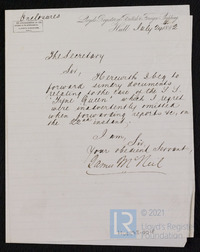 Enclosures
Lloyd's Register of British & Foreign Shipping
Hull July 24 1882
The Secretary
Sir, Herewith I beg to
forward sundry documents
relating to the case of the S.S.
"Tyne Queen" which I regret
were inadvertently omitted
when forwarding reports &c, on
the 22nd instant.
I am, Sir
Your obedient Servant,
James McNeil
© 2021
Lloyd's Register
Foundation